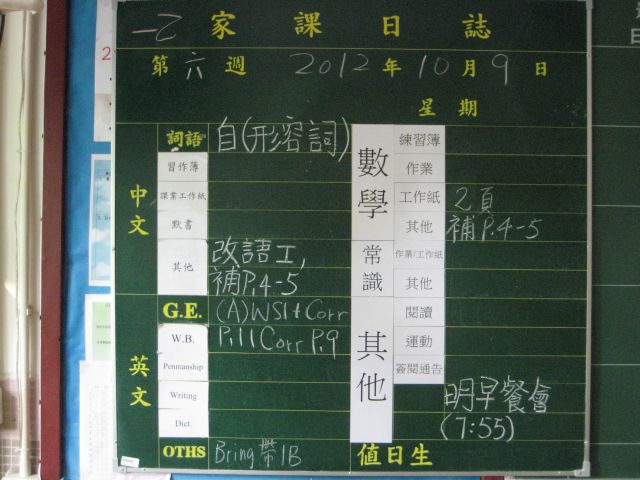 一乙 家課日誌
第六週 2012年10月9日
星期
中文
詞語 自(形容詞)
習作簿
課業工作紙
默書
其他 改語工,
補P.4-5
英文
G.E. (A)WS1+Corr
W.B. P.11 Corr P.9
Penmanship
Writing
Dict.
OTHS Bring帶1B
數學
練習簿
作業
工作紙 2頁
其他 補P.4-5
常識
作業/工作紙
其他
其他
閱讀
運動
簽閱通告
明早餐會
(7:55)
值日生